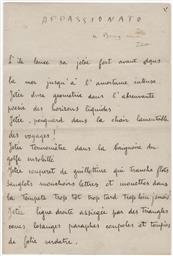 APPASSIONATO
S'il lance sa jetée fort avant dans
la mer jusqu'à l'amertume intense
Jetée dure géométrie dans l'abreuvante
poésie des horizons liquides
Jetée, poignard dans la chair lamentable
des voyages !
Jetée Termomètre dans la baignoire du
golfe
Jetée couperet de guillotine qui tranche flots
sanglots mouchoirs lettres et mouettes dans
la Tempête Trop tôt trop tard Trop loin jamais !
Jetée ligne droite assiégée par des Triangles
cones losanges paraphes coupoles et toupies
de folie verdatre.